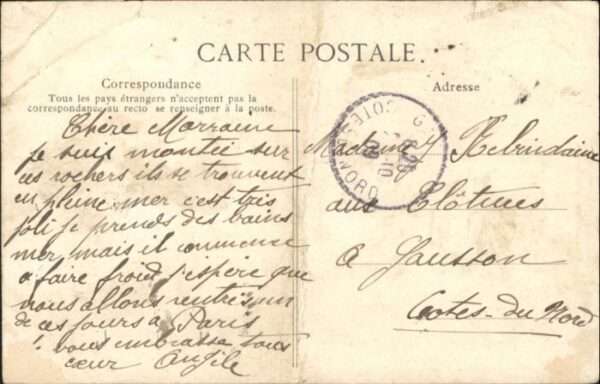 CARTE POSTALE.
Correspondance
Tous les pays étrangers n'acceptent pas la
correspondance au recto se renseigner à la poste.
Adresse
Chère Marraine
je suis montée sur
ces rochers ils se trouvent
en pleine mer c'est très
joli je prends des bains
mer mais il commence
a faire froid j'espère que
nous allons rentrer un
de ces jours a Paris
vous embrasse tous
cœur Angèle
COTES NORD
Madame
aux Clôtures
a Sausson
Cotes-du Nord